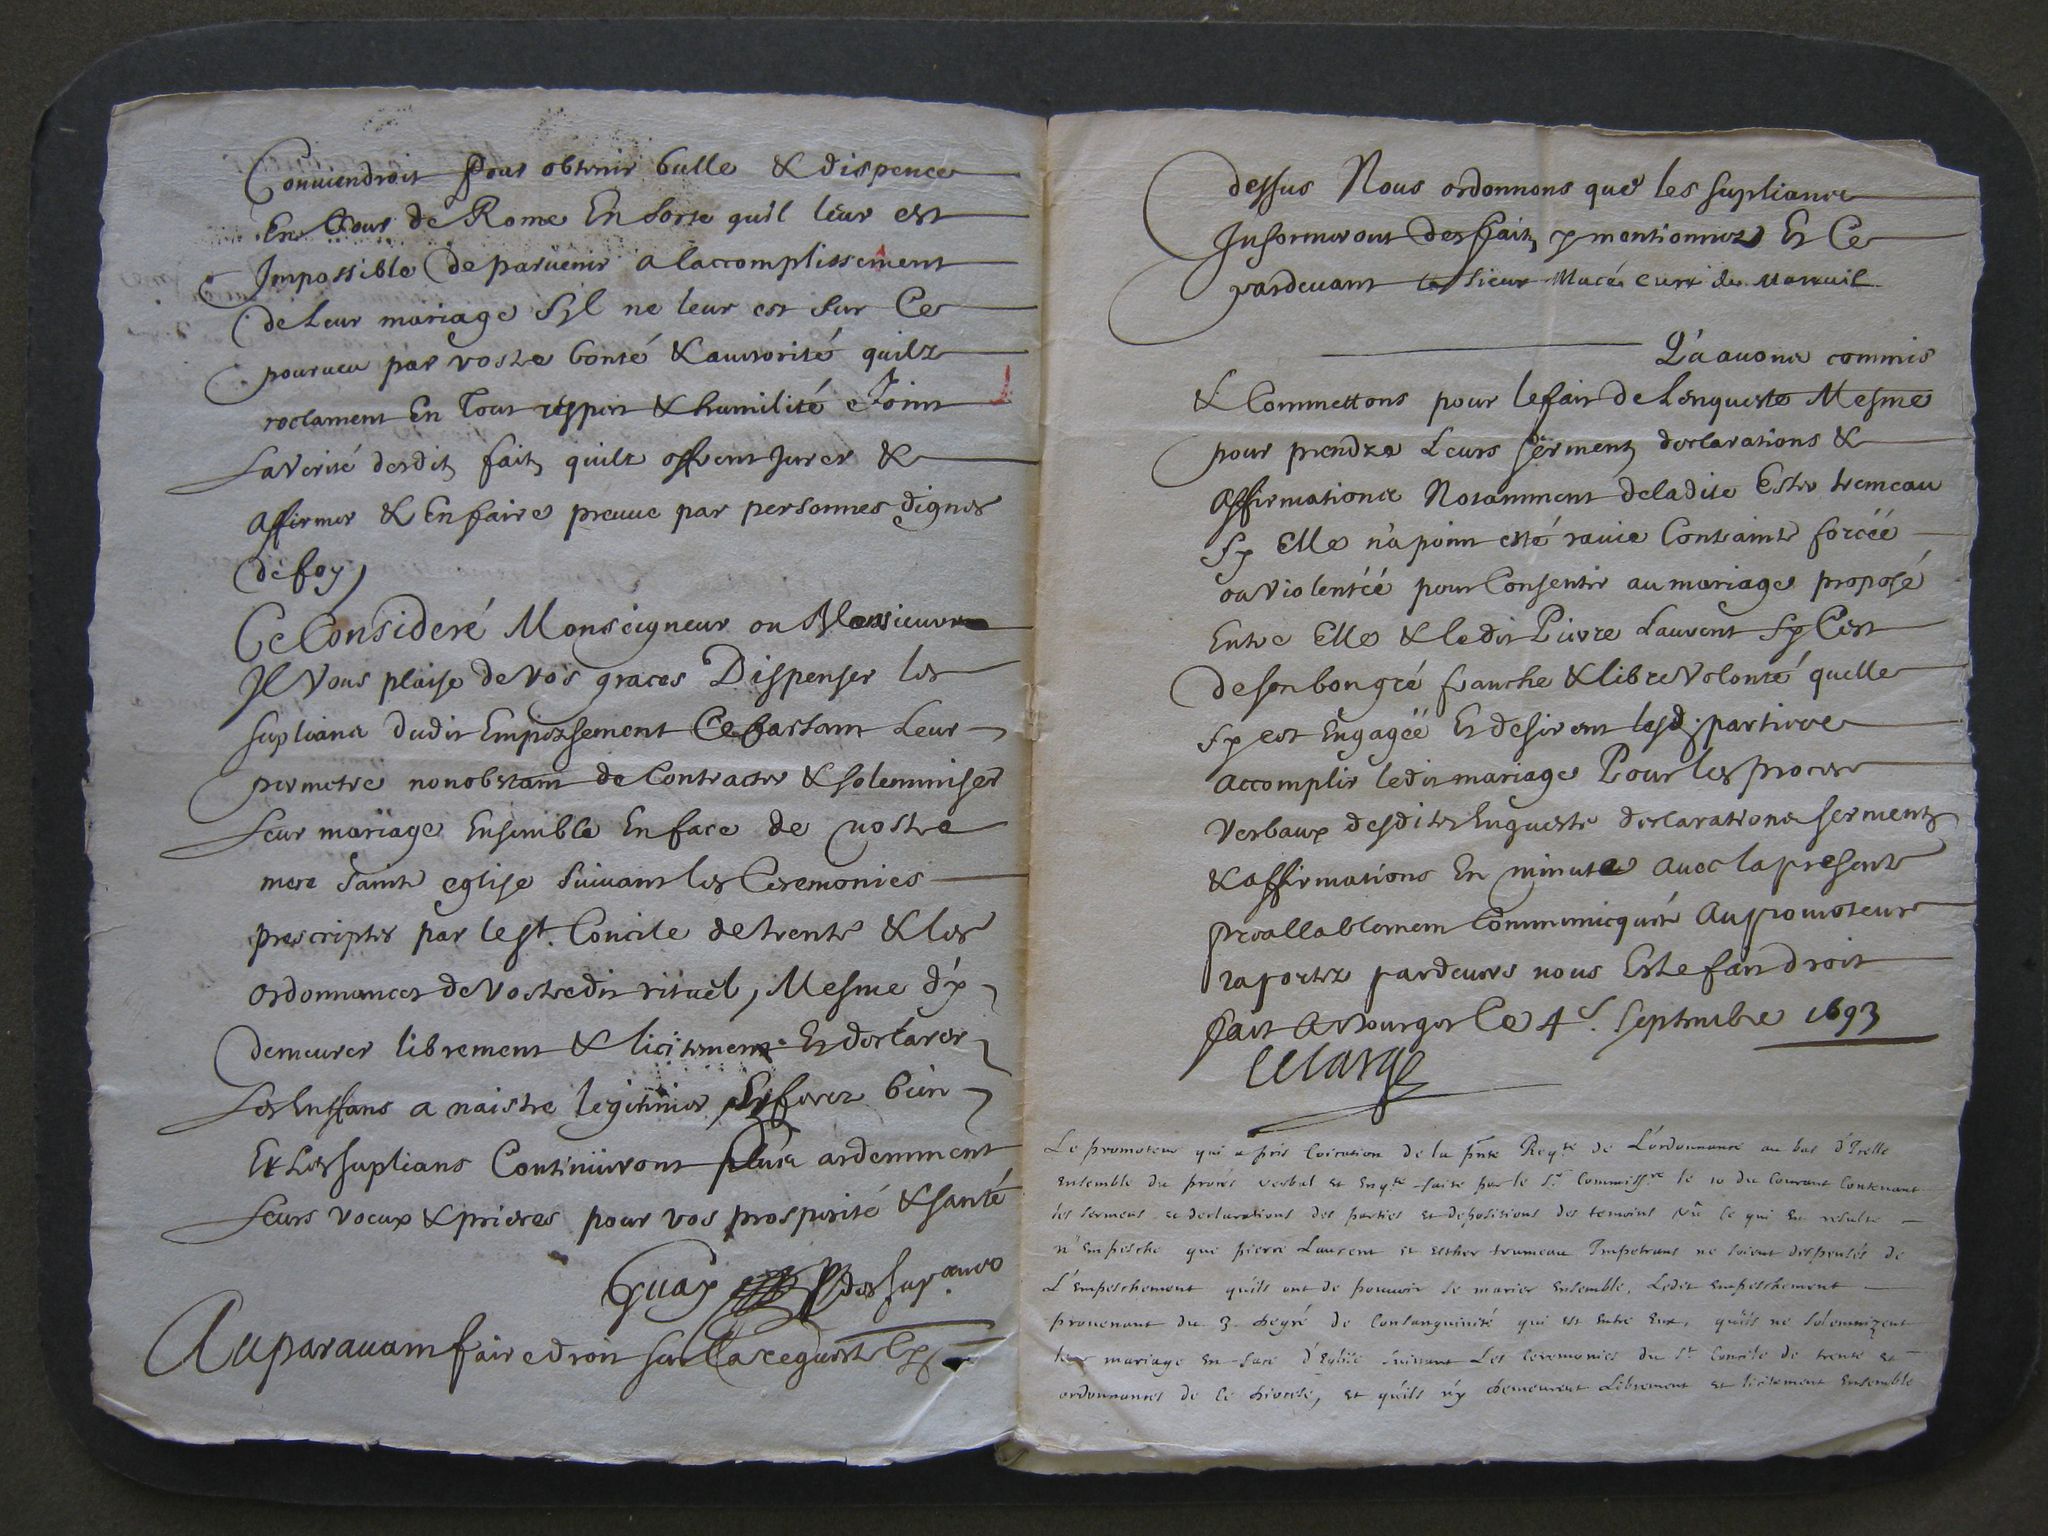 Conviendroit Pour obtenir bulle & dispence
En Cour de Rome En sorte quil leur est
Impossible de paruenir a laccomplissement
de Leur mariage Syl ne leur est sur Ce
pourueu par vostre bonté & autorité quilz
reclament En Tout respect & humilité Joint
La Verité desdit faitz quilz offrent Jurer &
affirmer & En faire preuue par personnes dignes
de foy,
Ce Consideré Monseigneur ou Messieurs
Il Vous plaise de Vos graces Dispenser les
supliants dudit Empeschement Ce faisant Leur
permetre nonobstant de Contracter & solemniser
Leur mariage Ensemble En face de nostre
mere Sainte eglise Suiuant les Ceremonies
prescriptes par le St. Concile de trente & les
ordonnances de Vostredit rituel, Mesme d'y
demeurer librement & licitement Et declarer
Les Enffans a naistre legitimes, Et ferez bien
Et Les suplians Continüeront plus ardemment
Leurs voeux & prieres pour vos prosperité & santé
Guay des sup.
Auparauant faire droit sur La requeste Cy
dessus Nous ordonnons que les supliants
Informeront des faitz y mentionnez Et Ce
pardeuant le Sieur Macé Curé de Mareuil
Q'auons commis
& Commettons pour le fait de Lenqueste Mesme
pour prendre Leurs serments declarations &
affirmations Notamment de ladite Ester tremeau
sy Elle n'a point esté rauie Contrainte forcée
ou Violentée pour Consentir au mariage proposé
Entre Elle & ledit Pierre Laurent sy C'est
de son bon gré franche & libre Volonté quelle
sy est Engagée Et desirent lesd. parties
accomplir ledit mariage Pour les proces
Verbaux desdites Enqueste declarations serments
& affirmations En minutte auec la presente
Preallablement Communicquée Au promoteur
raportez pardeuers nous Estre fait droit
fait A Bourges Ce 4e. Septembre 1693
Lelarge
Le promoteur qui a pris Coication de la pnte Reqte de L'ordonnance au bas d'Icelle
Ensemble du procés verbal et Enqte faite par le Sr Commissre le 10 du Courant Contenant
les serments et declarations des parties et depositions des temoins vû ce qui en resulte
n'Empesche que pierre Laurent et Esther trumeau Impetrans ne soient dispensés de
L'empeschement quils ont de pouuoir se marier Ensemble, Ledit empeschement
prouenant du 3. degré de Consanguinité qui est entre Eux, qu'ils ne solemnizent
leur mariage en face d'Eglise suiuant Les Ceremonies du St Concile de trente et
ordonnances de ce diocese, et qu'ils n'y demeurent Librement et licitement Ensemble